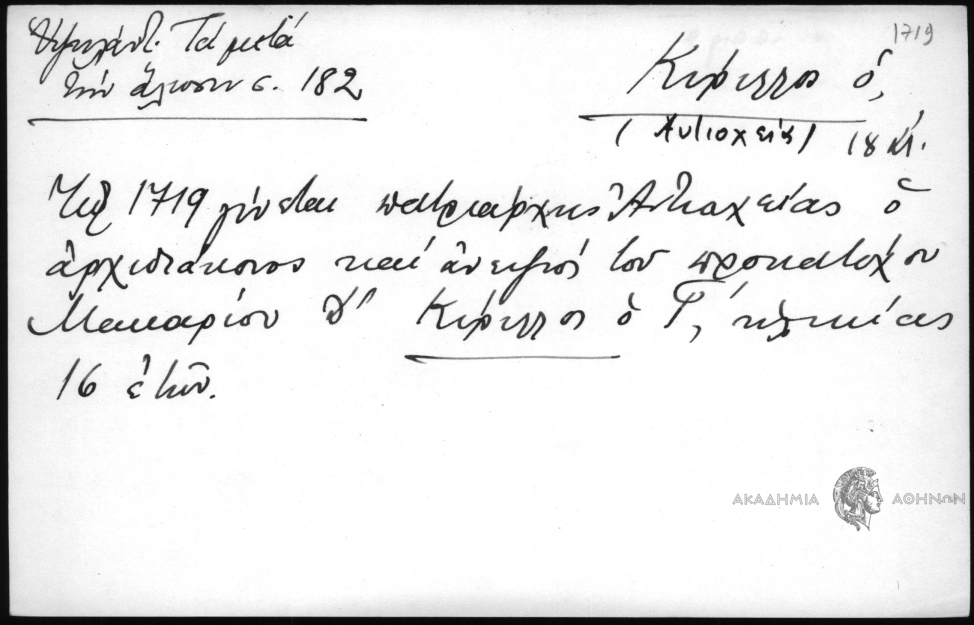 1719
Ὑψηλάντ. Τά μετά
τήν ἅλωσιν σ. 182
Κύριλλος ὁ,
(Ἀντιοχείας) 18 αἰ.
Τῷ 1719 γίνεται πατριάρχης Ἀντιοχείας ὁ
ἀρχιδιάκονος καί ἀνεψιός τοῦ προκατόχου
Μακαρίου Δ' Κύριλλος ὁ Γ', ἡλικίας
16 ἐτῶν.
ΑΚΑΔΗΜΙΑ ΑΘΗΝΩΝ